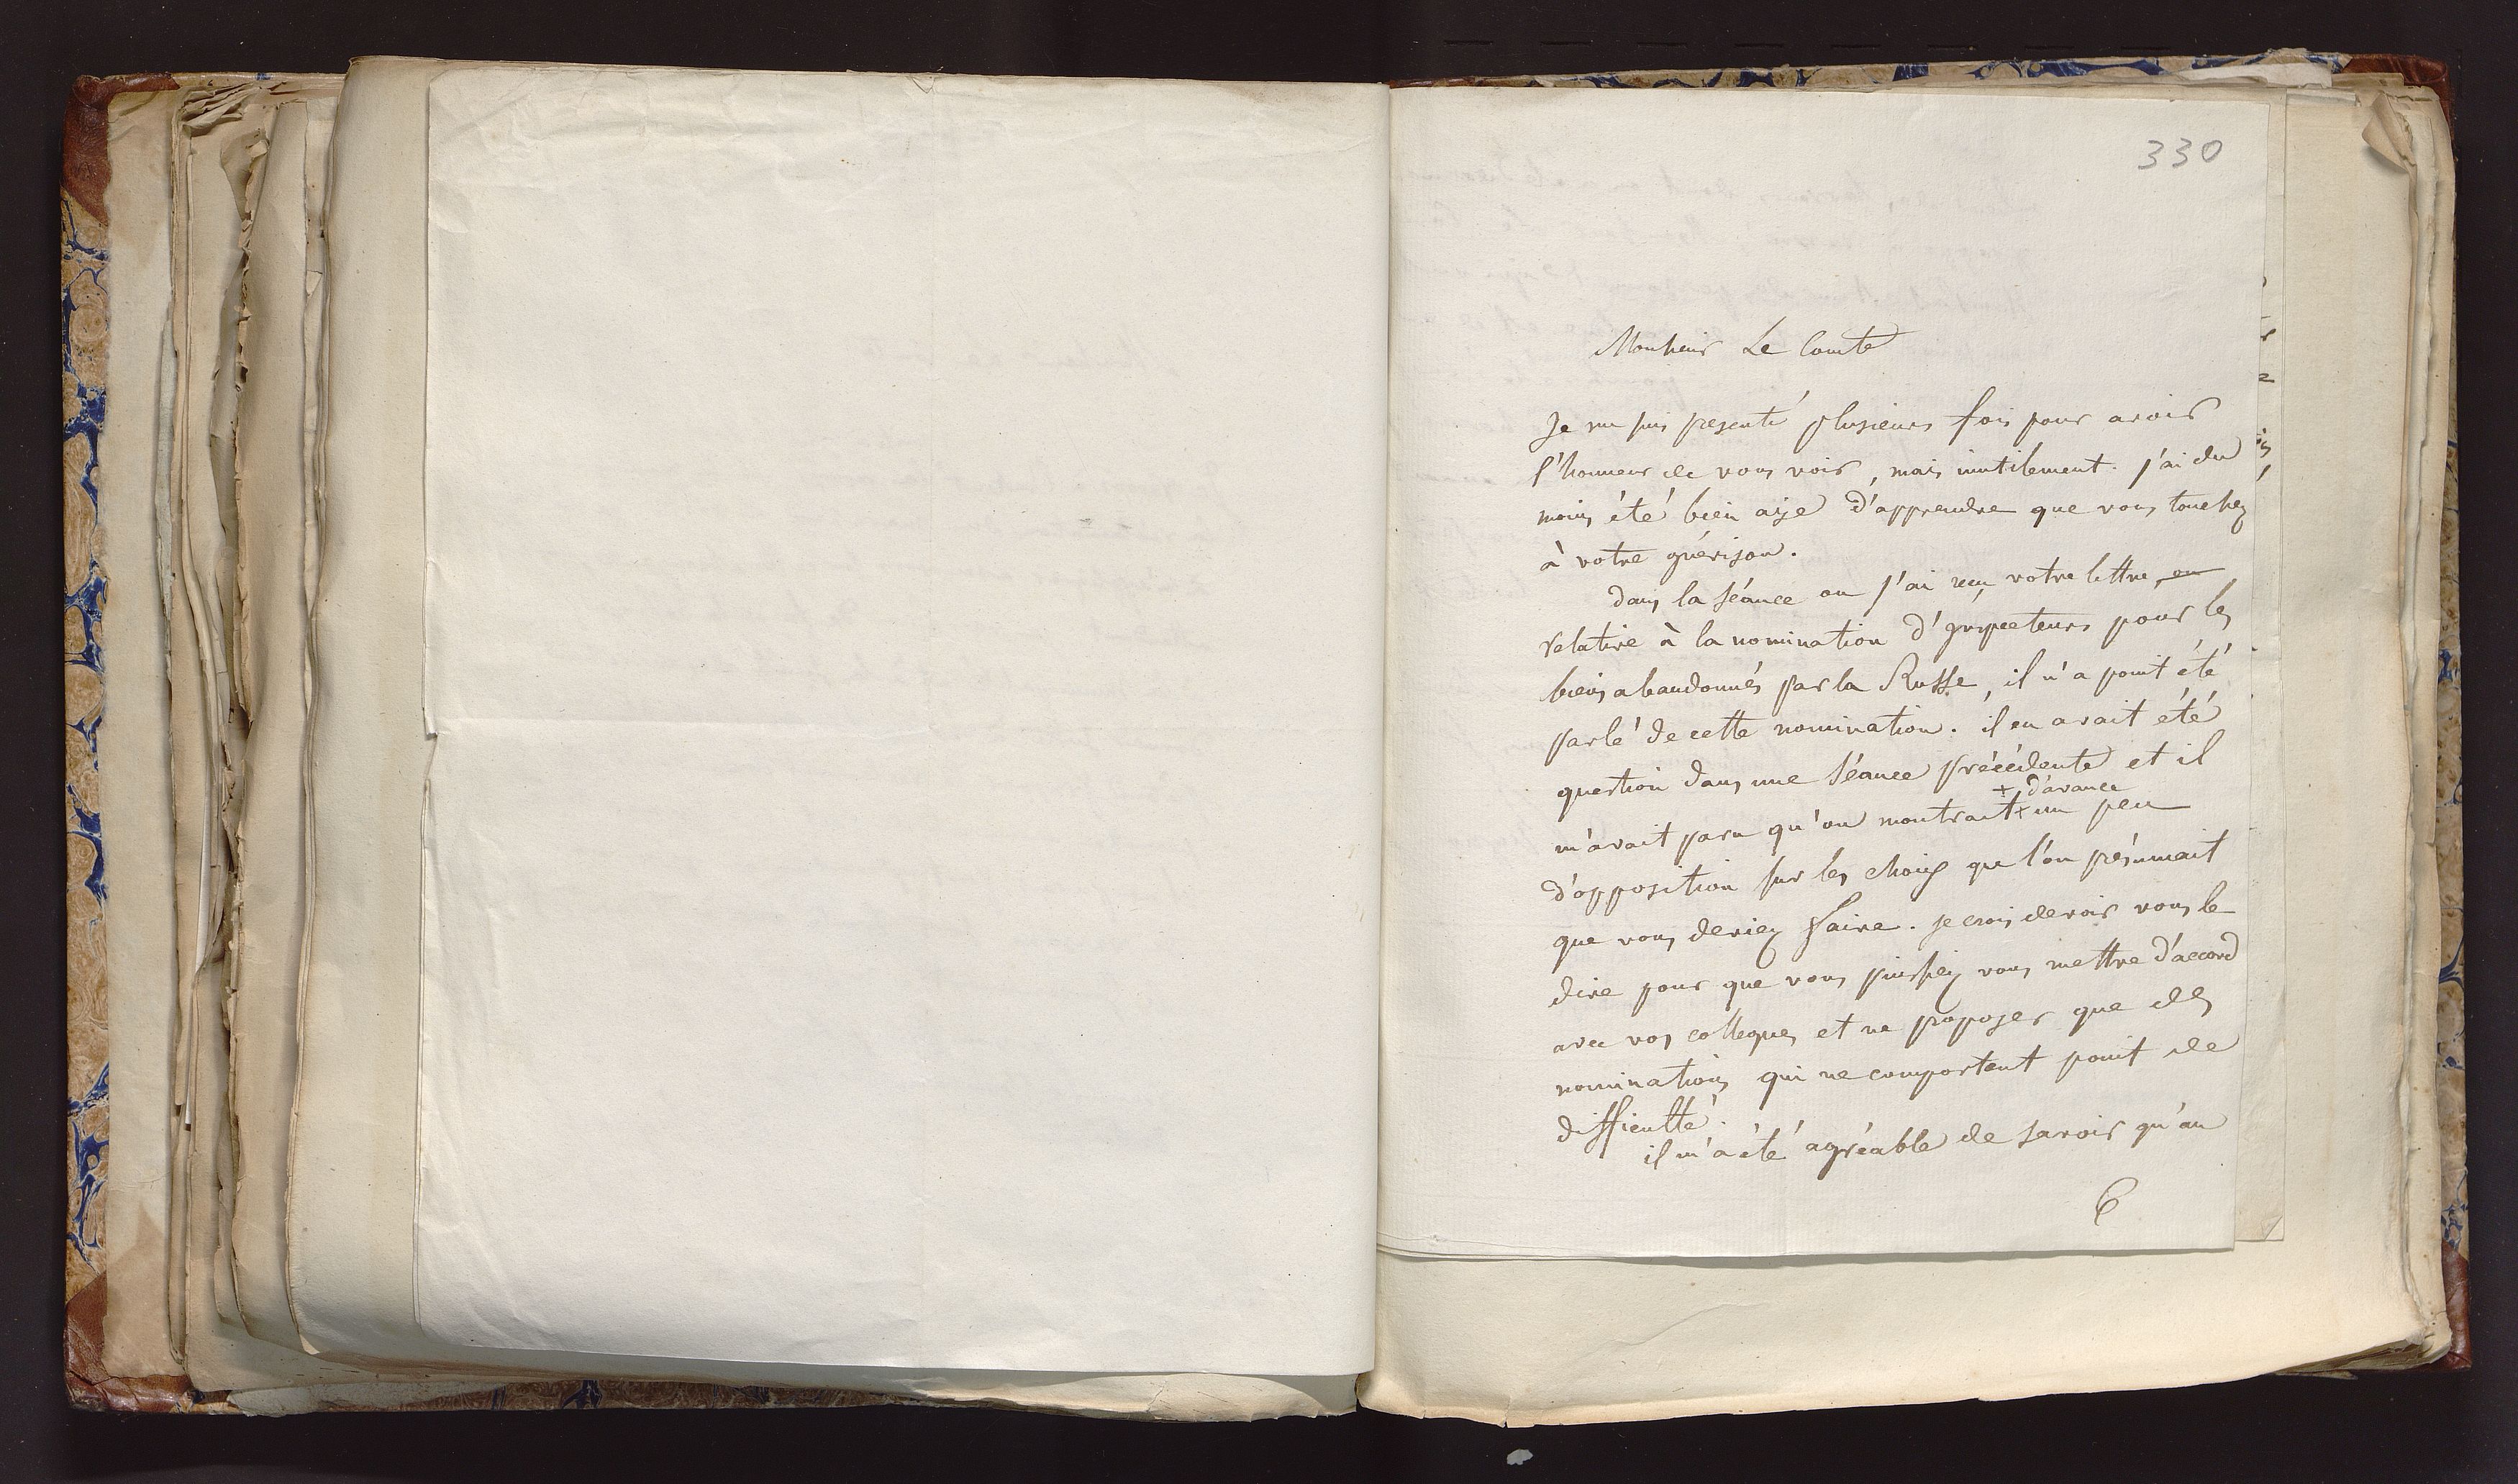 330
Monsieur Le Comte
Je me suis presenté plusieurs fois pour avoir
l'honneur de vous voir, mais inutilement. j'ai du
moins été bien aise d'apprendre que vous touchez
à votre guérison.
dans la séance ou j'ai reçu votre lettre, ou
relative à la nomination d'inspecteurs pour les
biens abandonnés par la Russe, il n'a point été
parlé de cette nomination. il en avait été
question dans une séance précédente et il
+ d'avance
m'avait paru qu'on montrait + un peu
d'opposition sur les choix que l'on présumait
que vous deviez faire. je crois devoir vous le
dire pour que vous puissiez vous mettre d'accord
avec vos collegues et ne proposer que des
nominations qui ne comportent point de
difficulté.
il m'a été agréable de savoir qu'au